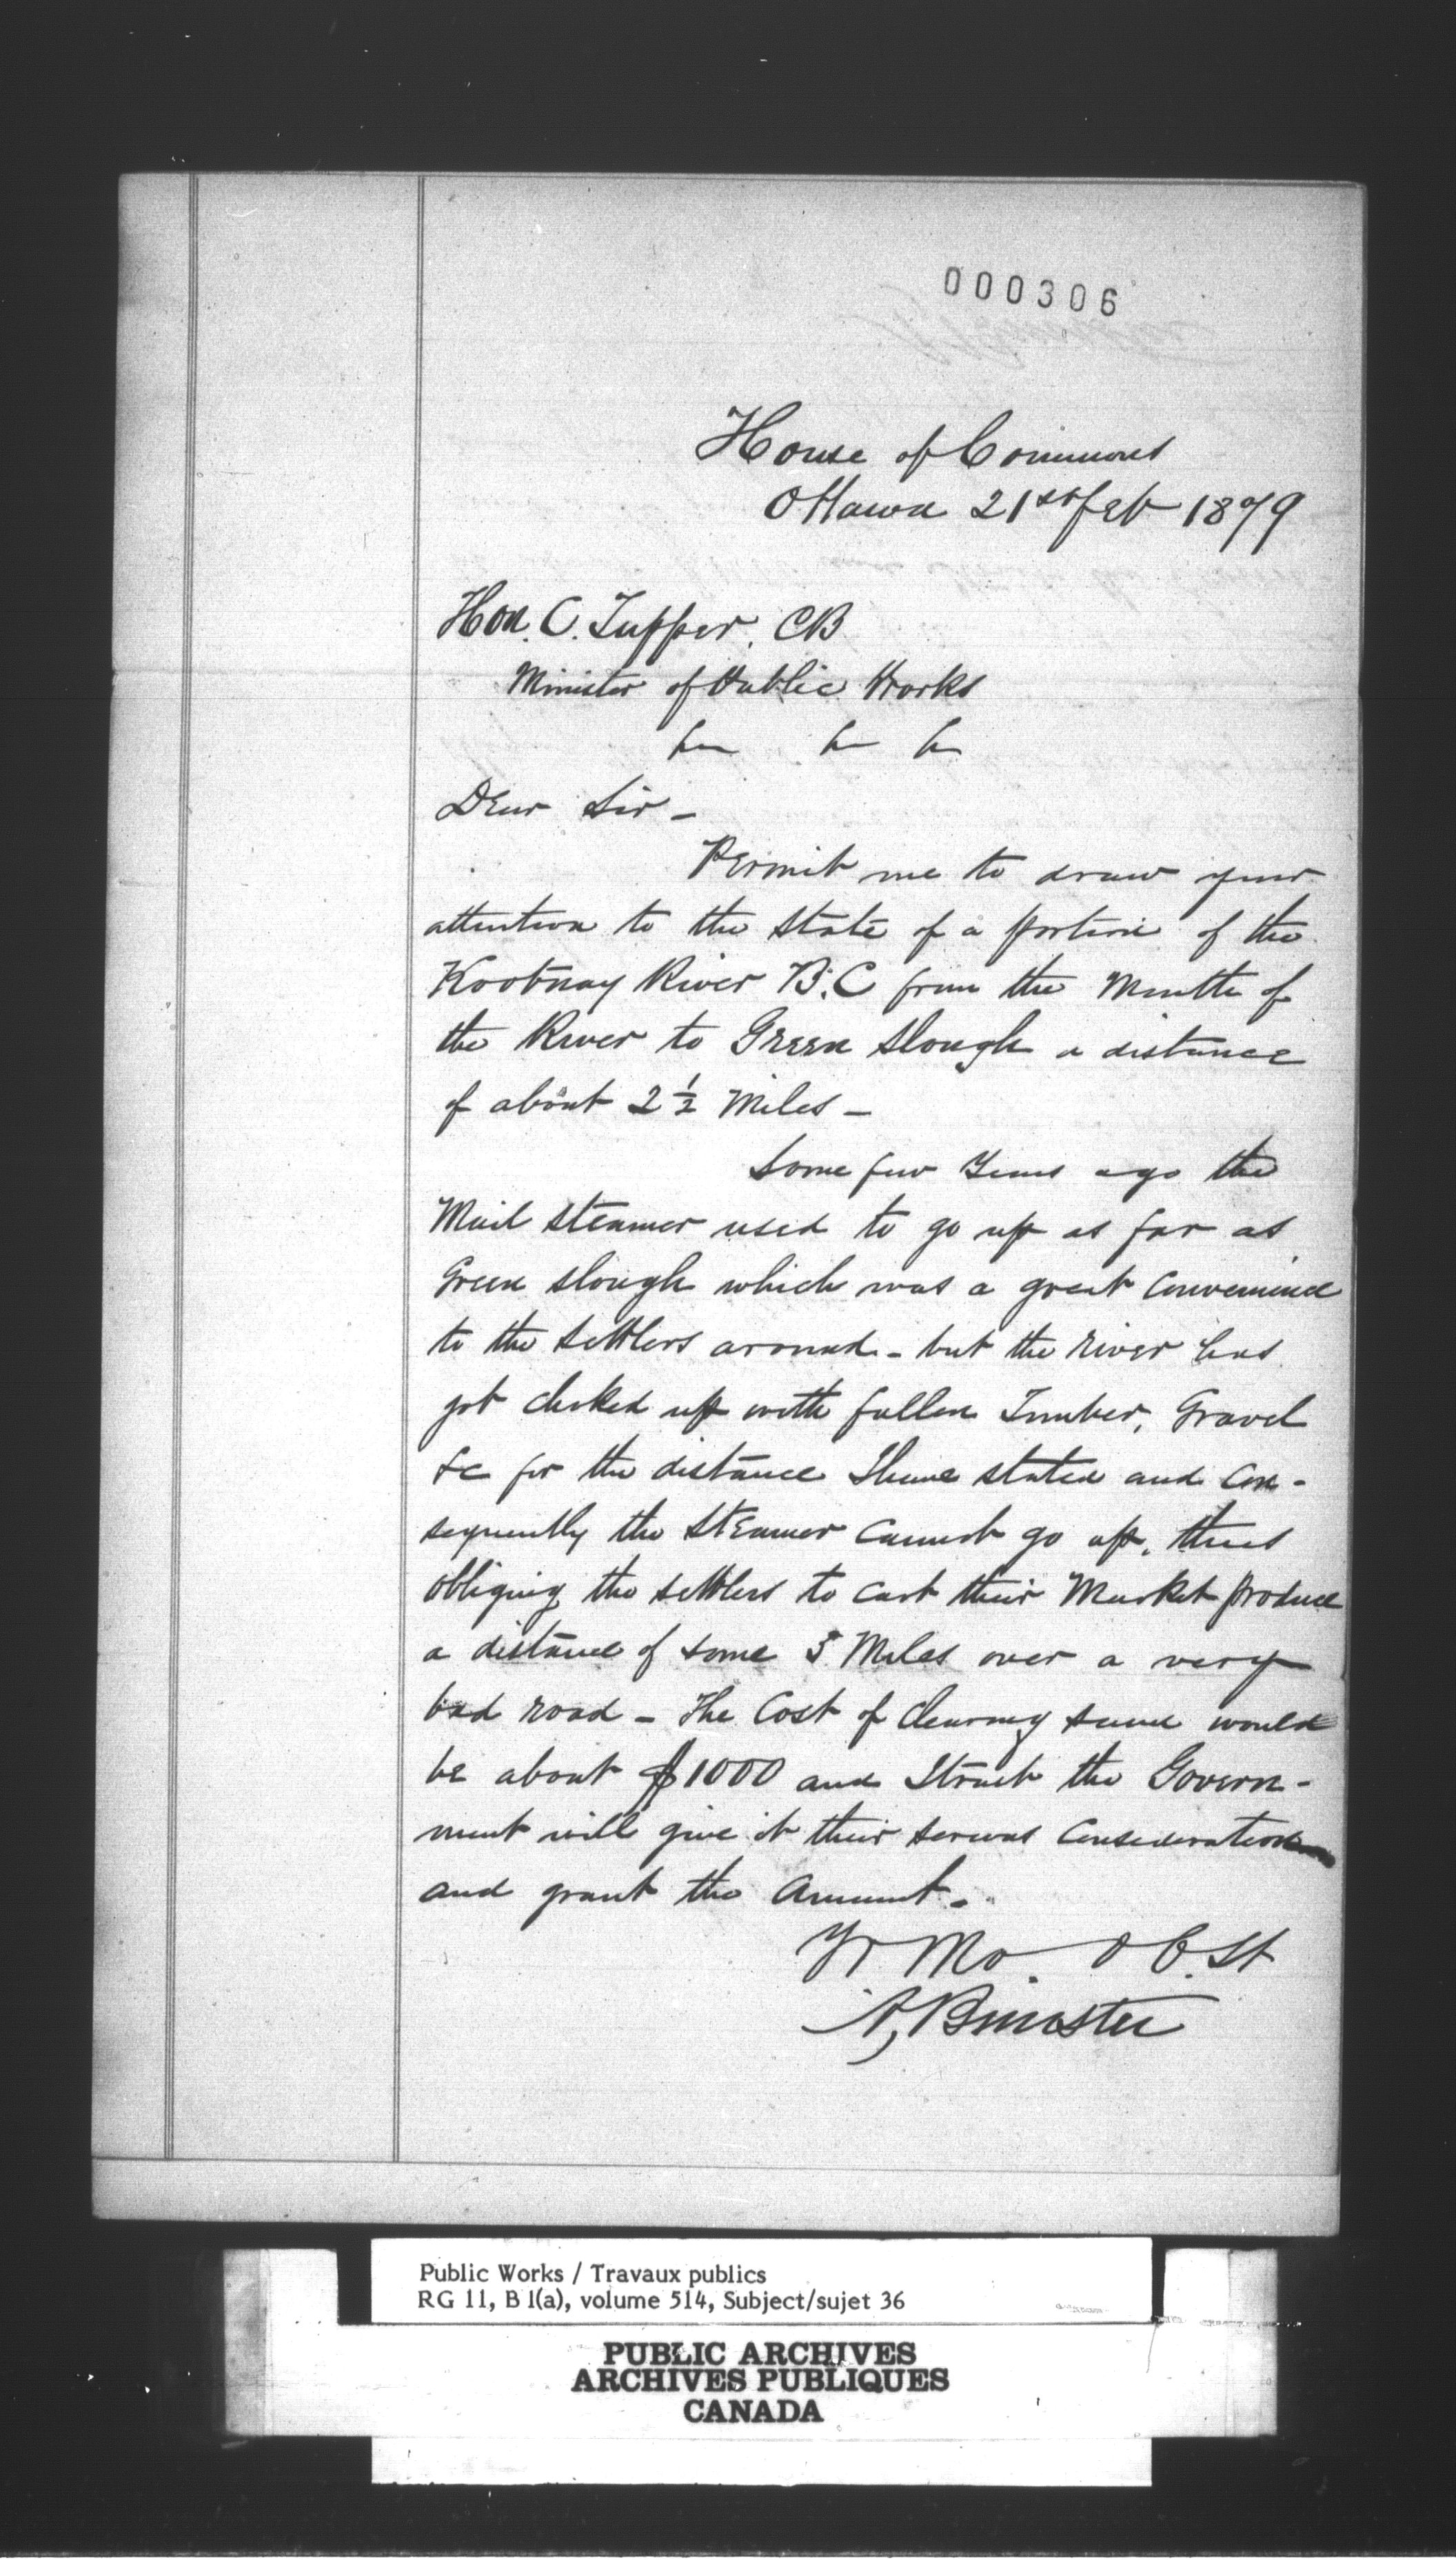 000306
House of Commons
Ottawa 21st Feb 1879
Hon. C. Tupper. CB
Minister of Public Works
Dear Sir -
Permit me to draw your
attention to the state of a portion of the
Kootnay River B.C from the Mouth of
the River to Green Slough a distance
of about 2 1/2 Miles -
Some few Years ago the
Mail steamer used to go up as far as
Green slough which was a great convenience
to the settlers around - but the river has
got choked up with fallen Timber, Gravel
&c for the distance I have stated and con-
sequently the Steamer cannot go up, thus
obliging the settlers to cart their Market produce
a distance of some 3 Miles over a very
bad road - The Cost of clearing same would
be about $1000 and I trust the Govern-
ment will give it their serious Consideration
and grant the Amount.
Yr Mo. O b. St
A, Bunster
Public Works / Travaux publics
RG 11, B 1(a), volume 514, Subject/sujet 36
PUBLIC ARCHIVES
ARCHIVES PUBLIQUES
CANADA